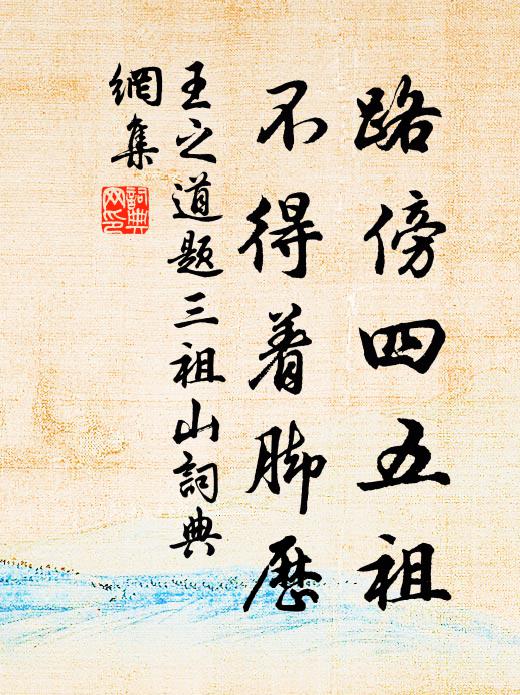 路傍四五祖
不得着脚歷
王之道題三祖山詞典
網集
詞典网印